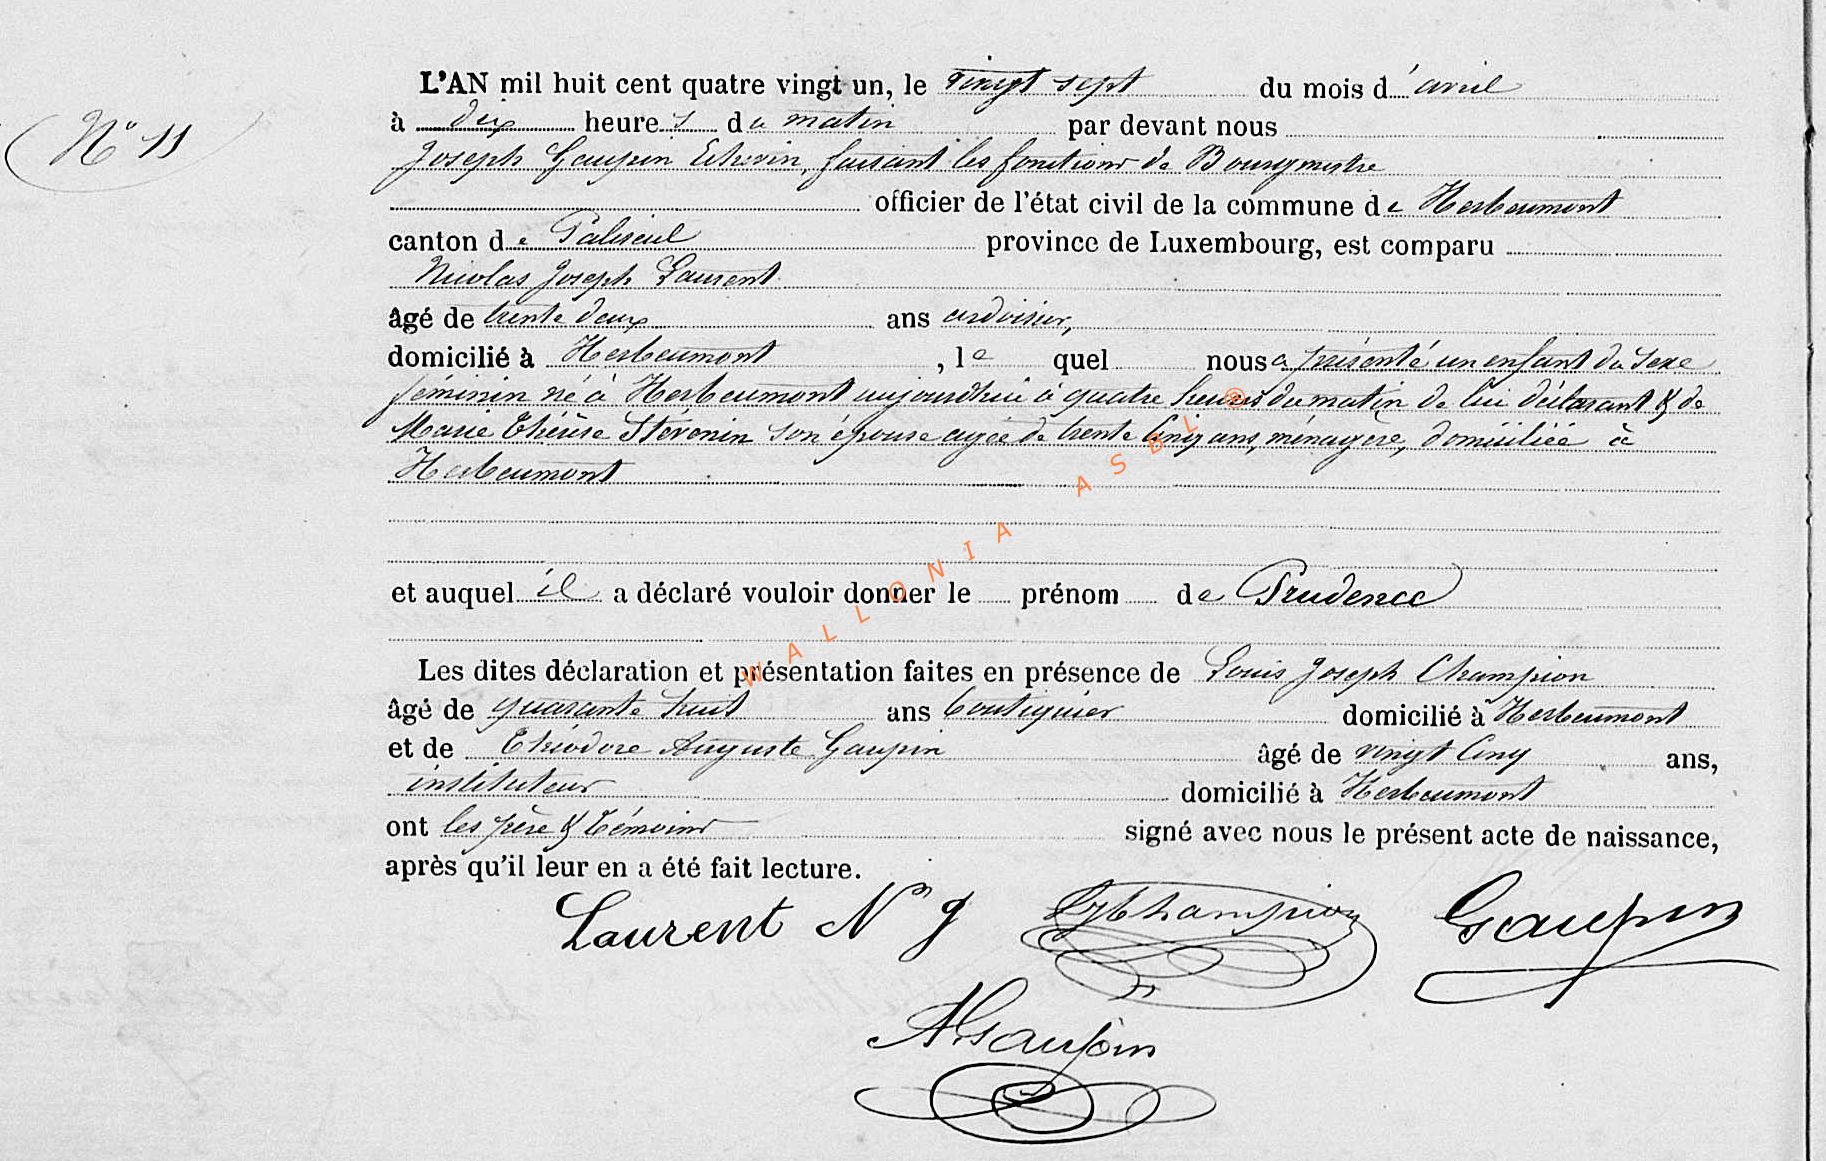 N° 11
L'AN mil huit cent quatre vingt un, le vingt sept du mois d'avril
à dix heures du matin par devant nous
Joseph Gaupin Echevin, faisant les fonctions de Bourgmestre
officier de l'état civil de la commune de Herbeumont
canton de Paliseul province de Luxembourg, est comparu
Nicolas Joseph Laurent
âgé de trente deux ans ardoisier,
domicilié à Herbeumont, lequel nous a présenté un enfant du sexe
féminin né à Herbeumont aujourdhui à quatre heures du matin de lui déclarant & de
Marie Thérèse Stévenin son épouse agée de trente cinq ans, ménagère, domiciliée à
Herbeumont
et auquel il a déclaré vouloir donner le prénom de Prudence
Les dites déclaration et présentation faites en présence de Louis Joseph Champion
âgé de quarante huit ans boutiquier domicilié à Herbeumont
et de Théodore Auguste Gaupin âgé de vingt cinq ans,
instituteur domicilié à Herbeumont
ont les père & témoins signé avec nous le présent acte de naissance,
après qu'il leur en a été fait lecture.
Laurent N J LJChampion Gaupin
AGaupin
WALLONIA ASBL ®